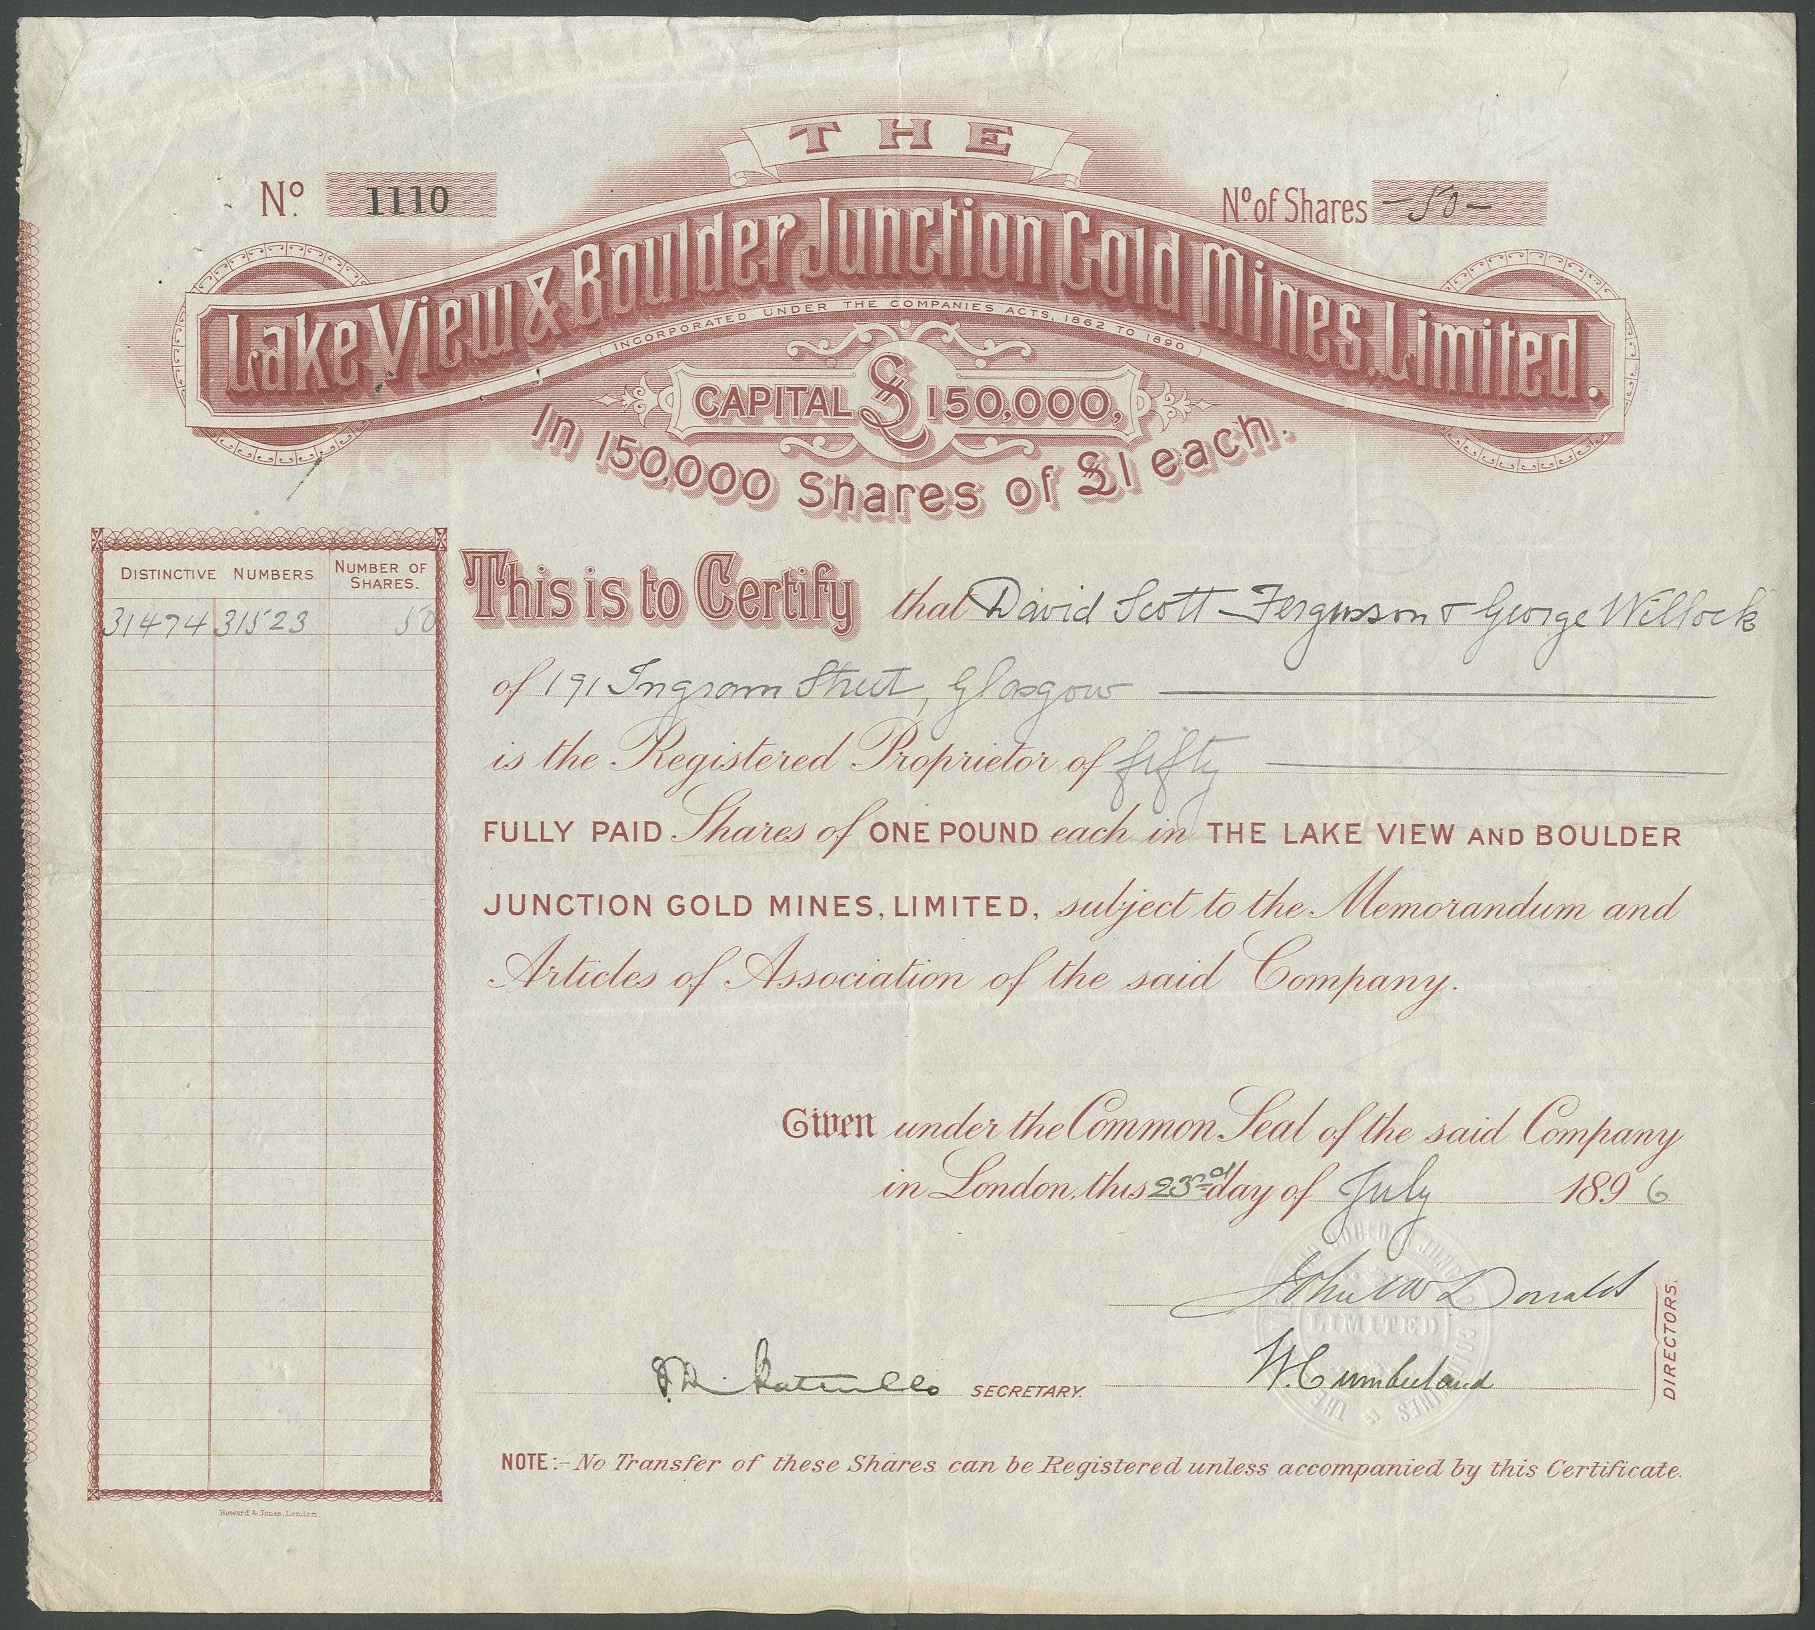 THE
No. 1110
No. of Shares -50-
Lake View & Boulder Junction Gold Mines, Limited.
INCORPORATED UNDER THE COMPANIES ACTS, 1862 TO 1890
CAPITAL £150,000,
In 150,000 Shares of £1 each.
DISTINCTIVE NUMBERS NUMBER OF SHARES.
31474 31523 50
This is to Certify that David Scott Fergusson & George Willock
of 191 Ingram Street, Glasgow
is the Registered Proprietor of fifty
FULLY PAID Shares of ONE POUND each in THE LAKE VIEW AND BOULDER
JUNCTION GOLD MINES, LIMITED, subject to the Memorandum and
Articles of Association of the said Company.
Given under the Common Seal of the said Company
in London, this 23rd day of July 1896
John W Donald
LIMITED
W. Cumberland
DIRECTORS.
SECRETARY.
NOTE:- No Transfer of these Shares can be Registered unless accompanied by this Certificate.
Howard & Jones, London.